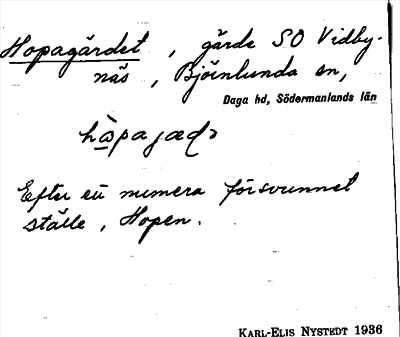 Hopagärdet, gärde SO Vidby-
näs, Björnlunda sn,
Daga hd, Södermanlands län
hɷ̀pajædɔ
Efter ett numera försvunnet
ställe, Hopen.
KARL-ELIS NYSTEDT 1936